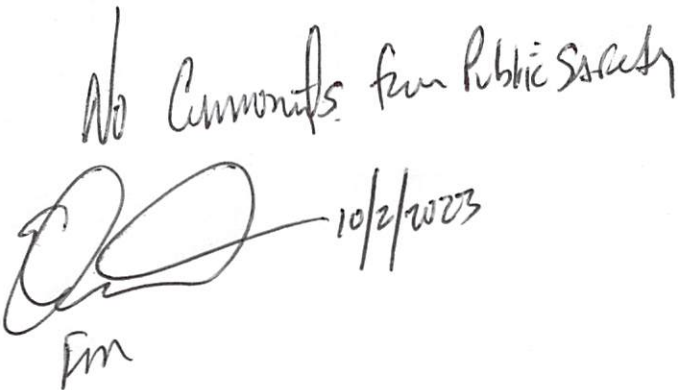 No Comments from Public Safety
10/2/2023
FM